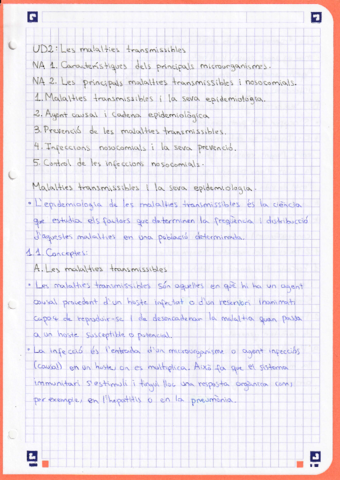 UD2: Les malalties transmissibles
NA 1. Característiques dels principals microorganismes.
NA 2. Les principals malalties transmissibles i nosocomials.
1. Malalties transmissibles i la seva epidemiologia.
2. Agent causal i cadena epidemiològica
3. Prevenció de les malalties transmissibles.
4. Infeccions nosocomials i la seva prevenció.
5. Control de les infeccions nosocomials.
Malalties transmissibles i la seva epidemiologia.
• L'epidemiologia de les malalties transmissibles és la ciència
que estudia els factors que determinen la freqüència i distribució
d'aquestes malalties en una població determinada.
1.1. Conceptes:
A. Les malalties transmissibles
• Les malalties transmissibles són aquelles en què hi ha un agent
causal procedent d'un hoste infectat o d'un reservori inanimat
capaç de reproduir-se i de desencadenar la malaltia quan passa
a un hoste susceptible o potencial.
• La infecció és l'entrada d'un microorganisme o agent infecciós
(causal) en un hoste, on es multiplica. Això fa que el sistema
immunitari s'estimuli i tingui lloc una resposta orgànica com,
per exemple, en l'hepatitis o en la pneumònia.